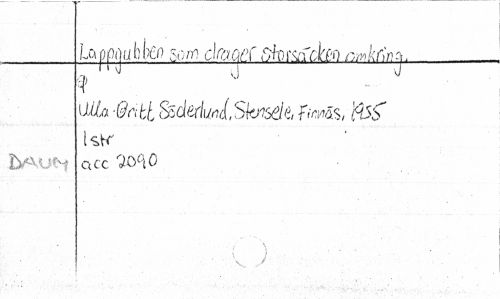 Lappgubben som drager storsäcken omkring.
Ulla-Britt Söderlund, Stensele, Finnäs, 1955
1 str
DAUM acc 2090